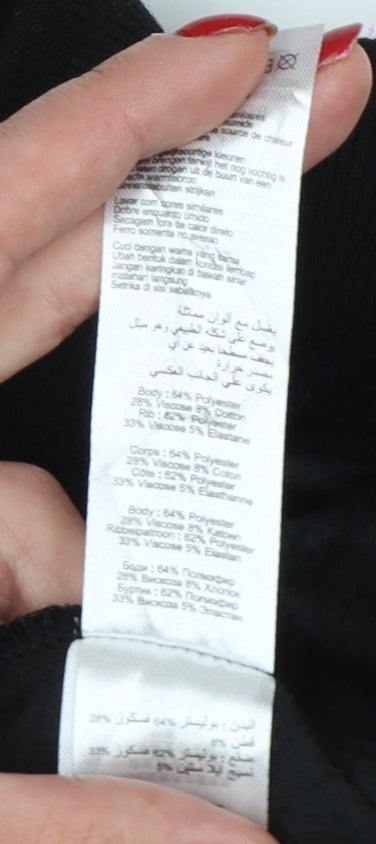 source de chaleur
soortgelijke kleuren
terwijl het nog vochtig is
drogen uit de buurt van een
warmtebron
Binnenstebuiten strijken
Lavar com cores similares
Dobre enquanto úmido
Secagem fora de calor direto
Ferro somente no avesso
Cuci dengan warna yang sama
Ubah bentuk dalam kondisi lembap
Jangan keringkan di bawah sinar
matahari langsung
Setrika di sisi sebaliknya
يغسل مع ألوان مماثلة
يوضع على شكله الطبيعي وهو مبتل
يجفف مسطحا بعيد عن أي
مصدر حرارة
يكوى على الجانب العكسي
Body : 64% Polyester
28% Viscose 8% Cotton
Rib : 62% Polyester
33% Viscose 5% Elastane
Corps : 64% Polyester
28% Viscose 8% Coton
Côte : 62% Polyester
33% Viscose 5% Elasthanne
Body : 64% Polyester
28% Viscose 8% Katoen
Ribbelpatroon : 62% Polyester
33% Viscose 5% Elastan
Боди : 64% Полиэфир
28% Вискоза 8% Хлопок
Буртик : 62% Полиэфир
33% Вискоза 5% Эластан
البدن : بوليستر 64% فسكوز 28%
قطن 8%
بوليستر 62% فسكوز 33%
5%